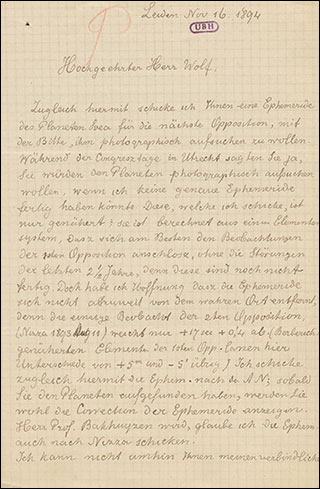 Leiden Nov 16. 1894
UBH
Hochgeehrter Herr Wolf.
Zugleich hiermit schicke ich Ihnen eine Ephemeride
des Planeten Svea für die nächste Opposition, mit
der Bitte, ihm photographisch aufsuchen zu wollen.
Während der Congresstage in Utrecht sagten Sie ja,
Sie würden den Planeten photographisch aufsuchen
wollen, wenn ich keine genaue Ephemeride
fertig haben könnte. Diese, welche ich schicke, ist
nur genähert: sie ist berechnet aus einem Elementen
system, dasz sich am Besten den Beobachtungen
der 1sten Opposition anschlosz, ohne die Störungen
der letzten 2½ Jahre, denn diese sind noch nicht
fertig. Doch habe ich Hoffnung dasz die Ephemeride
sich nicht von dem wahren Ort entfernt,
denn die einzige Beobacht der 2ten Opposition,
(Nizza 1893 11) weicht nur +17 sec +0,4 ab
genäherten Elemente der 1sten Opp. kamen hier
Unterschiede von +5m und -5' übrig) Ich schicke
zugleich hiermit die Ephem. nach de A.N; sobald
Sie den Planeten aufgefunden haben, werden Sie
wohl die Correction der Ephemeride anzeigen.
Herr Prof. Bakhuyzen wird, glaube ich die Ephem
auch nach Nizza schicken.
Ich kann nicht umhin Ihnen meinen verbindlichen